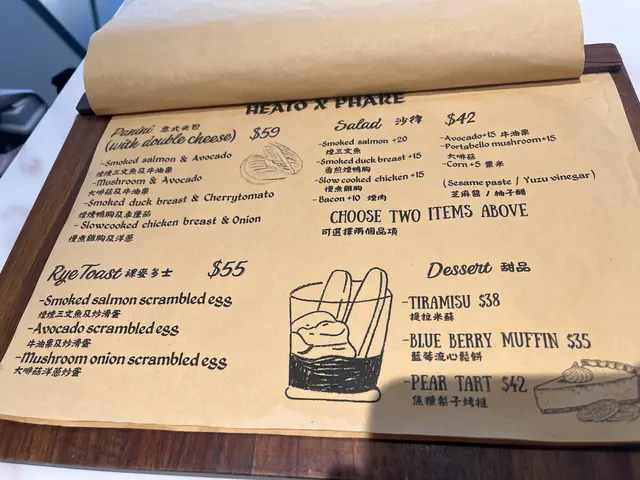 HEATO X PHARE
Panini 意式夾包
(with double cheese) $59
-Smoked salmon & Avocado
煙三文魚及牛油果
-Mushroom & Avocado
大啡菇及牛油果
-Smoked duck breast & Cherrytomato
煙燻鴨胸及車厘茄
-Slowcooked chicken breast & Onion
慢煮雞胸及洋蔥
Salad 沙律 $42
-Smoked salmon +20
煙三文魚
-Smoked duck breast +15
香煎燻鴨胸
-Slow cooked chicken +15
慢煮雞胸
- Bacon +10 煙肉
-Avocado+15 牛油果
-Portabello mushroom+15
大啡菇
-Corn +5 粟米
(Sesame paste / Yuzu vinegar)
芝麻醬 / 柚子醋
CHOOSE TWO ITEMS ABOVE
可選擇兩個品項
Rye Toast 裸麥多士 $55
-Smoked salmon scrambled egg
煙三文魚及炒滑蛋
-Avocado scrambled egg
牛油果及炒滑蛋
-Mushroom onion scrambled egg
大啡菇洋蔥炒蛋
Dessert 甜品
-TIRAMISU $38
提拉米蘇
-BLUE BERRY MUFFIN $35
藍莓流心鬆餅
-PEAR TART $42
焦糖梨子烤撻